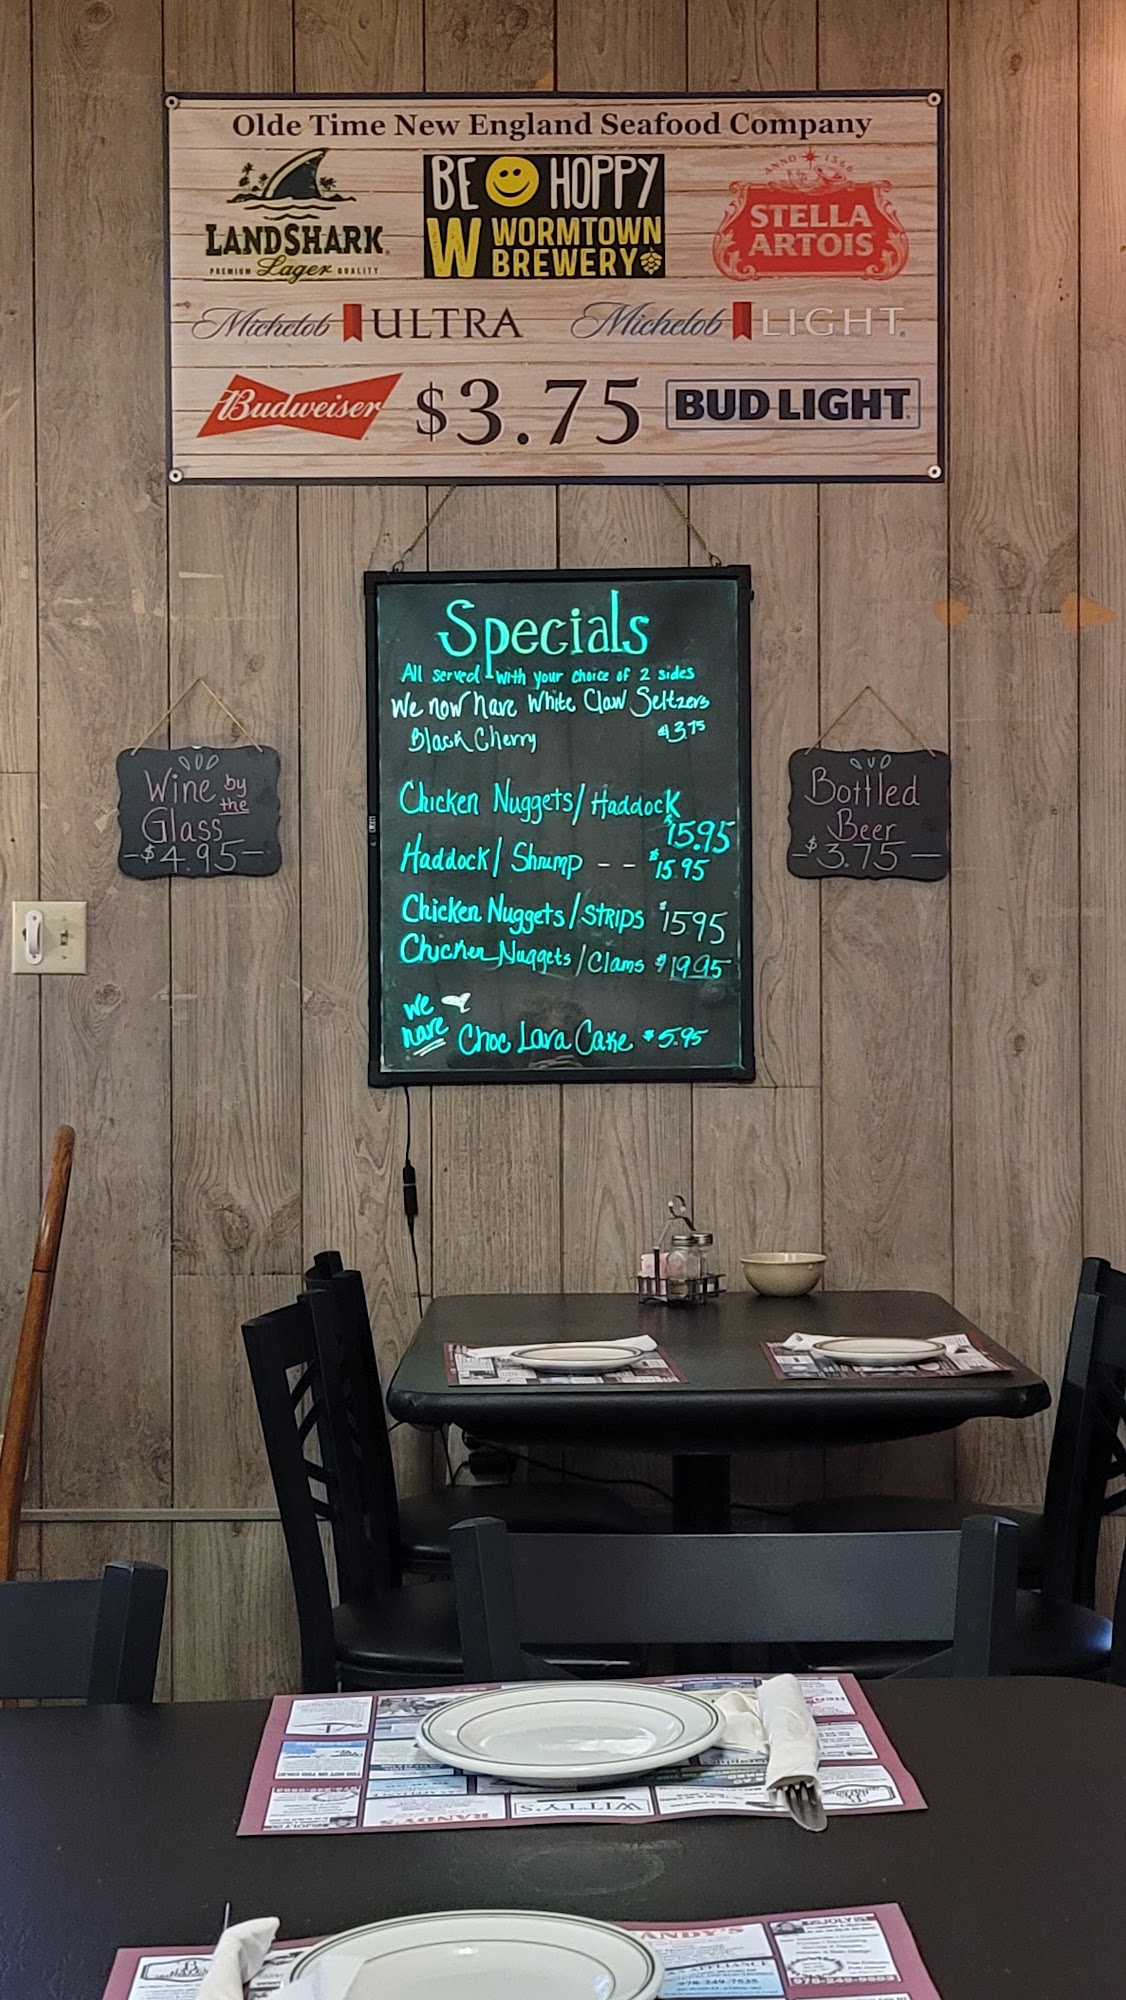 Olde Time New England Seafood Company
LANDSHARK
PREMIUM Lager QUALITY
BE HOPPY
W WORMTOWN
BREWERY
ANNO 1366
STELLA
ARTOIS
Michelob ULTRA
Michelob LIGHT
Budweiser
$3.75
BUD LIGHT
Specials
All served with your choice of 2 sides
We now have White Claw Seltzers
Black Cherry $3.75
Chicken Nuggets/Haddock
$15.95
Haddock/Shrimp -- $15.95
Chicken Nuggets/STRIPS $1595
Chicken Nuggets/Clams $19.95
We
have Choc Lava Cake $5.95
Wine by
the
Glass
-$4.95-
Bottled
Beer
-$3.75-
WITT'S
RANDY'S
JOLY
978-249-9593
APPLIANCE
978-249-7535